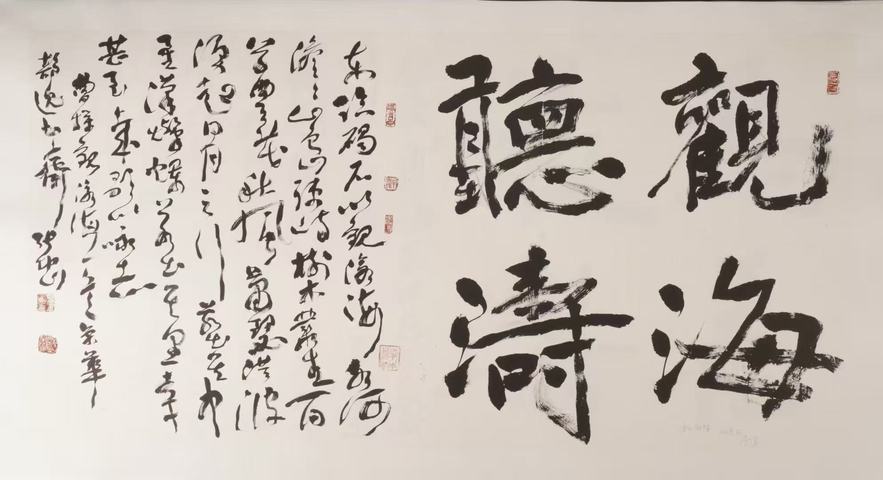 觀海
聽濤
東臨碣石以觀滄海水何
澹澹山島竦峙樹木叢生百
草豐茂秋風蕭瑟洪波
湧起日月之行若出其中
星漢燦爛若出其里幸
甚至哉歌以咏志
曹操觀滄海 京華
靜逸書齋